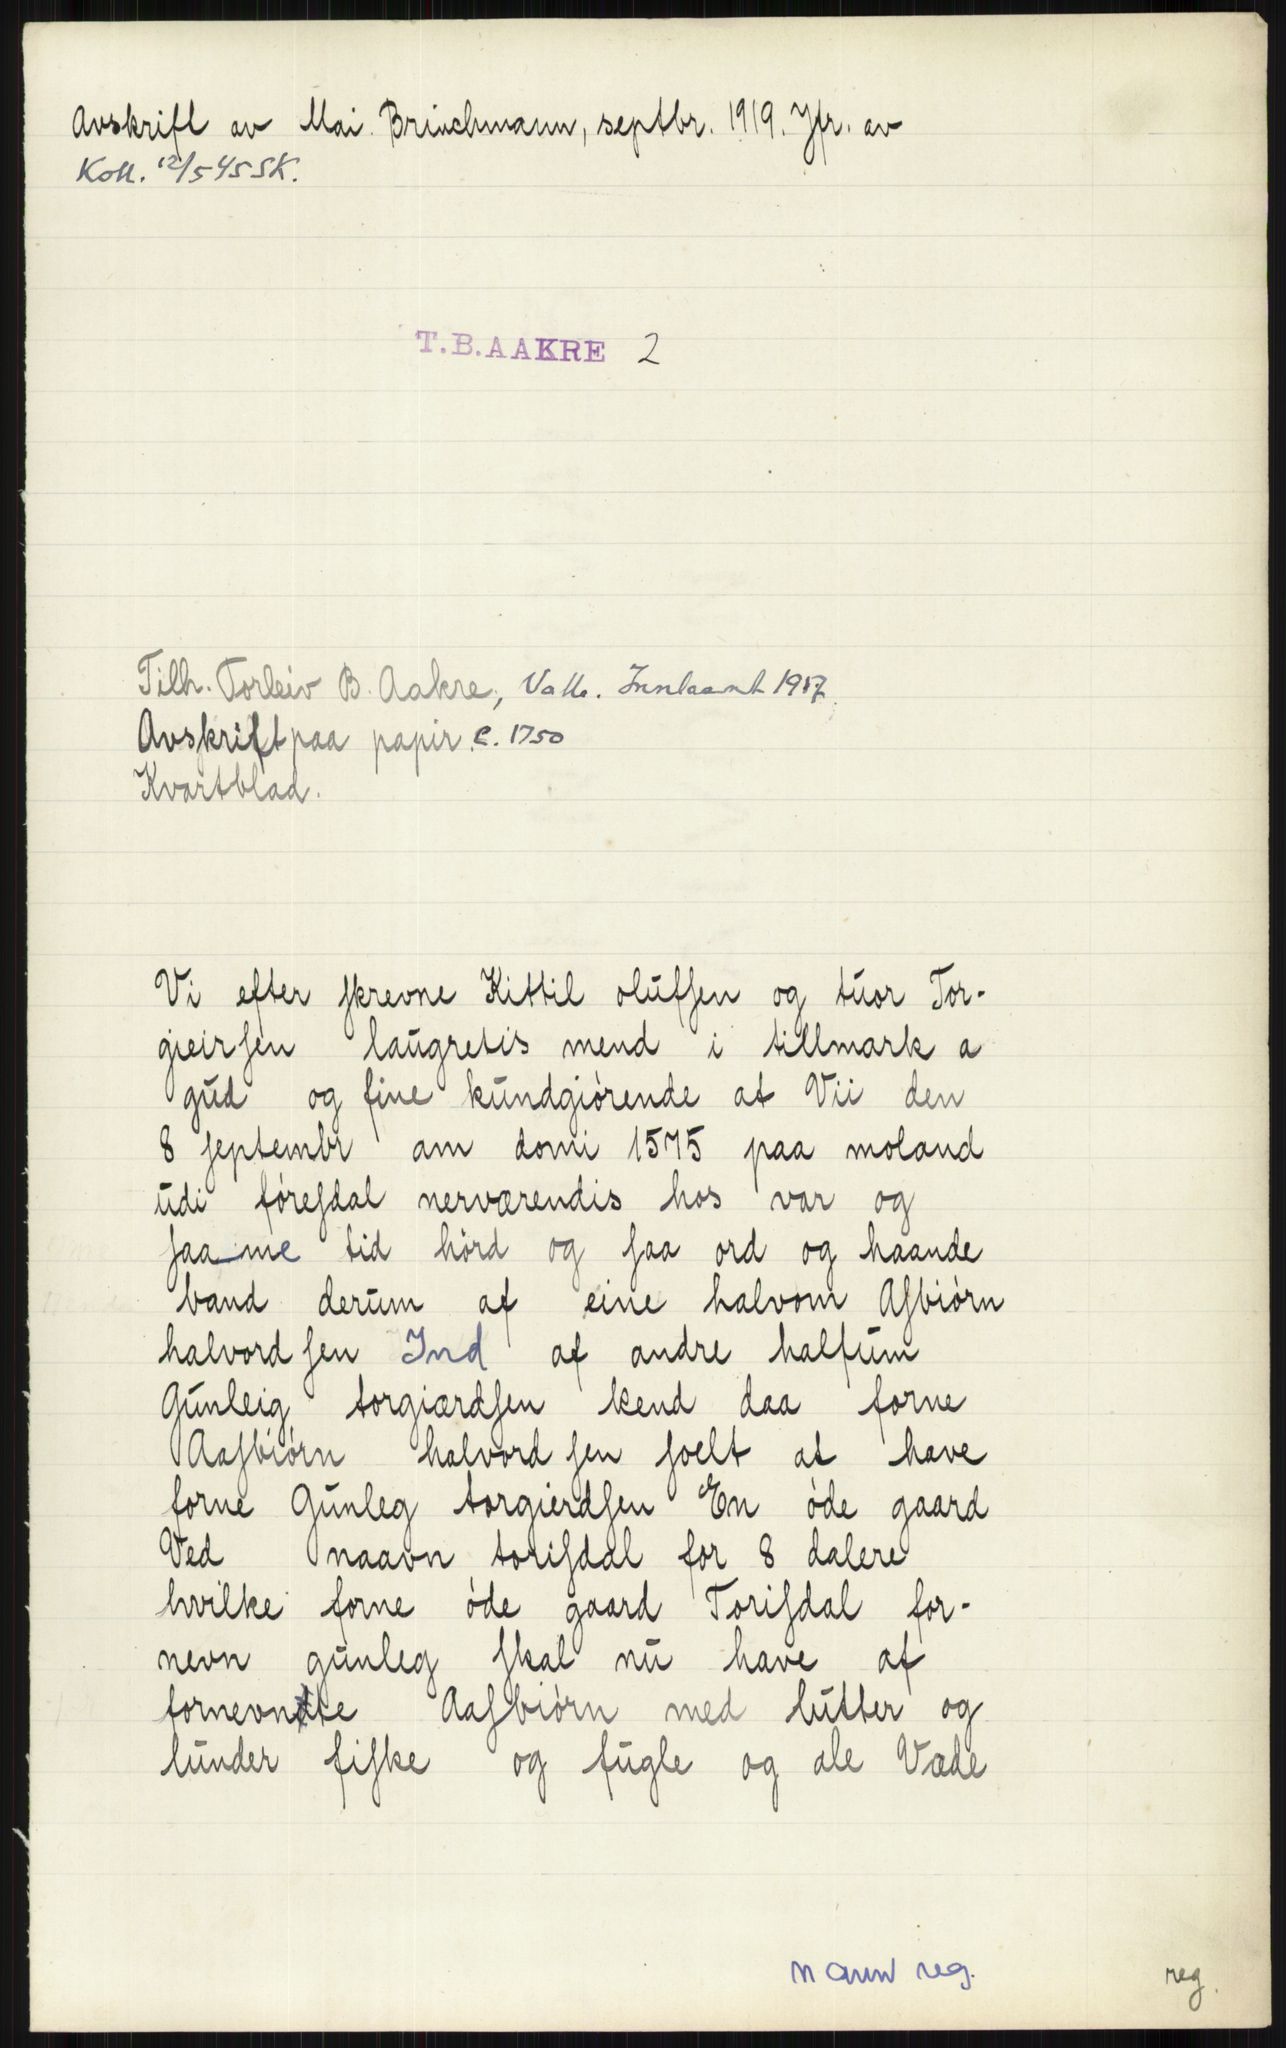 Avskrift av Mai Brinchmann, septbr. 1919. Jfr. av
Koll. 12/5 45 SK.
T.B.AAKRE 2
Tilh. Torleiv B. Aakre, Valle. Innlaant 1917.
Avskrift paa papir c. 1750
Kvartblad.
Vi efter skrevne Kittil olufsen og tuor Tor-
gieirsen laugretis mend i tillmark a
gud og fine kundgiørende at Vii den
8 septembr am domi 1575 paa moland
udi føresdal nerværendis hos var og
saa me tid hørd og saa ord og haande
band derum af eine halvom Asbiørn
halvord sen Ind af andre halfum
Gunleig torgiærdsen kend daa forne
Aasbiørn halvord sen soelt at have
forne Gunleg torgierdsen En øde gaard
Ved naavn torisdal for 8 dalere
hvilke forne øde gaard Torisdal for-
nevn gunleg skal nu have af
fornevnte Aasbiørn med lutter og
lunder fiske og fugle og ale Væde
navn reg.
reg.